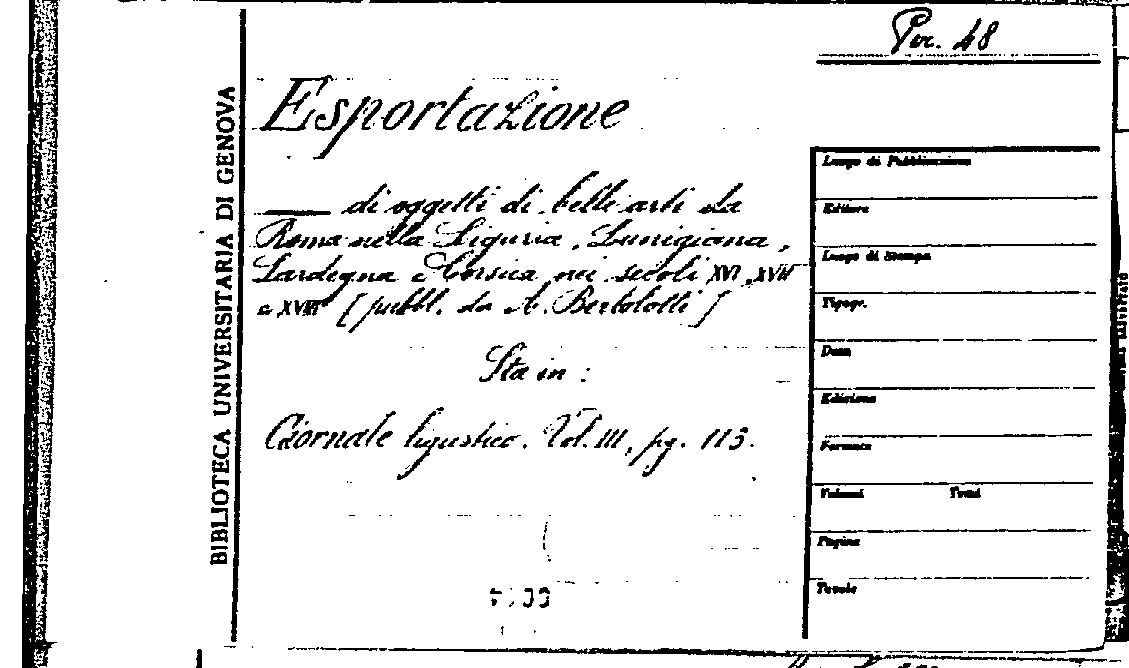 Per. 48
BIBLIOTECA UNIVERSITARIA DI GENOVA
Esportazione
____ di oggetti di belle arti da
Roma nella Liguria, Lunigiana,
Sardegna e Corsica nei secoli XVI, XVII
e XVIII [pubbl. da A. Bertolotti]
Sta in :
Giornale ligustico. Vol. III, pg. 113.
Luogo di Pubblicazione
Editore
Luogo di Stampa
Tipogr.
Data
Edizione
Formato
Volumi Tomi
Pagine
Tavole